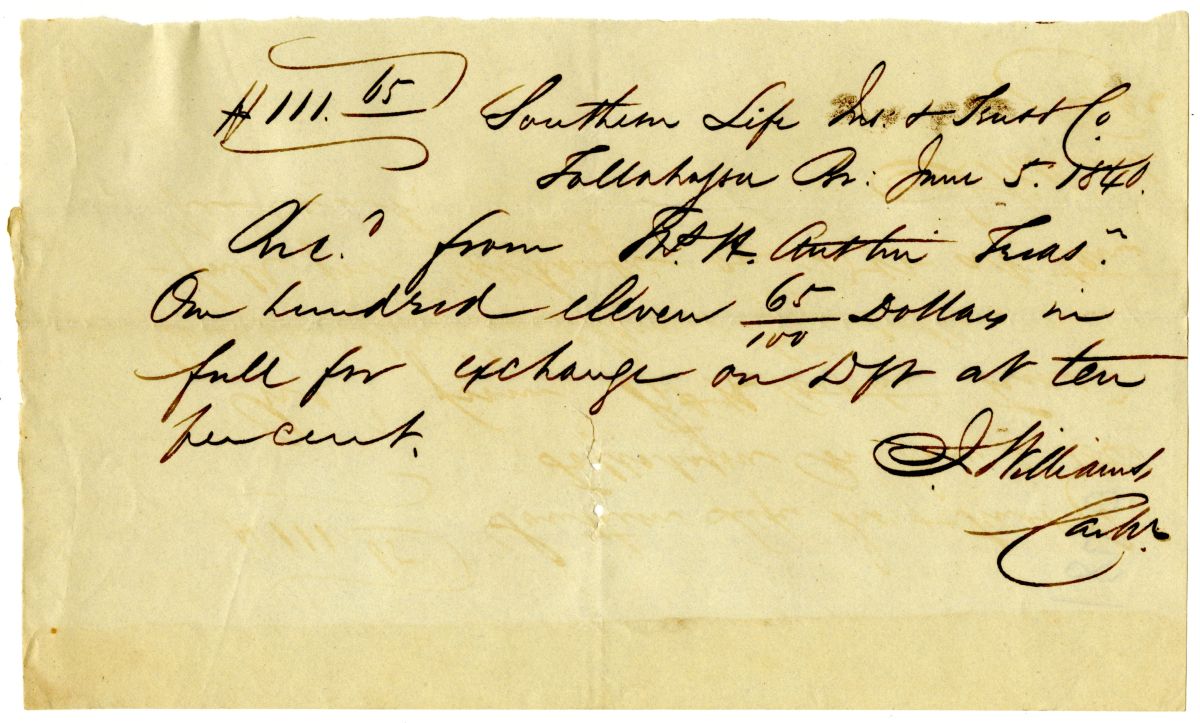 $111. 65 Southern Life Ins. & Trust Co.
Tallahassee Br: June 5. 1840.
Rec.d from Th.s H. Austin Treas.r
One hundred eleven 65/100 Dollars in
full for exchange on Dft at ten
per cent.
J Williams
Cashr.